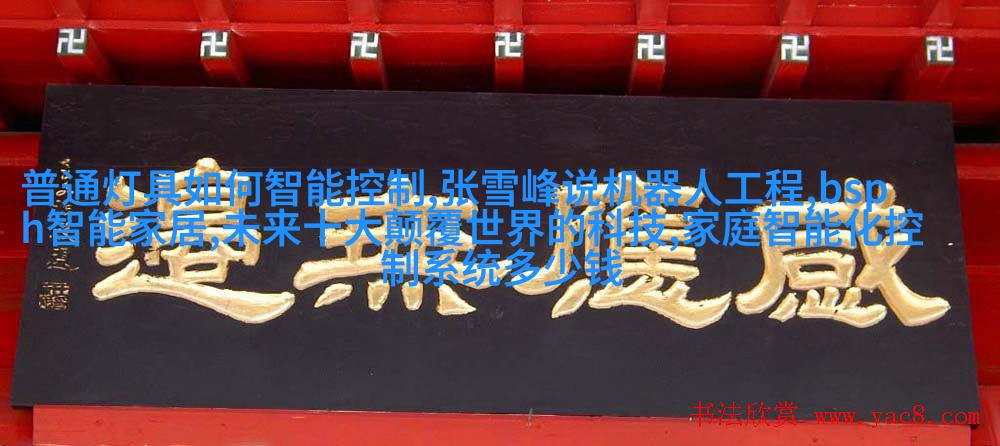 普通灯具如何智能控制,张雪峰说机器人工程,bsp
h智能家居,未来十大颠覆世界的科技,家庭智能化控
制系统多少钱
感應無邊
书法欣赏 www.yac8.com